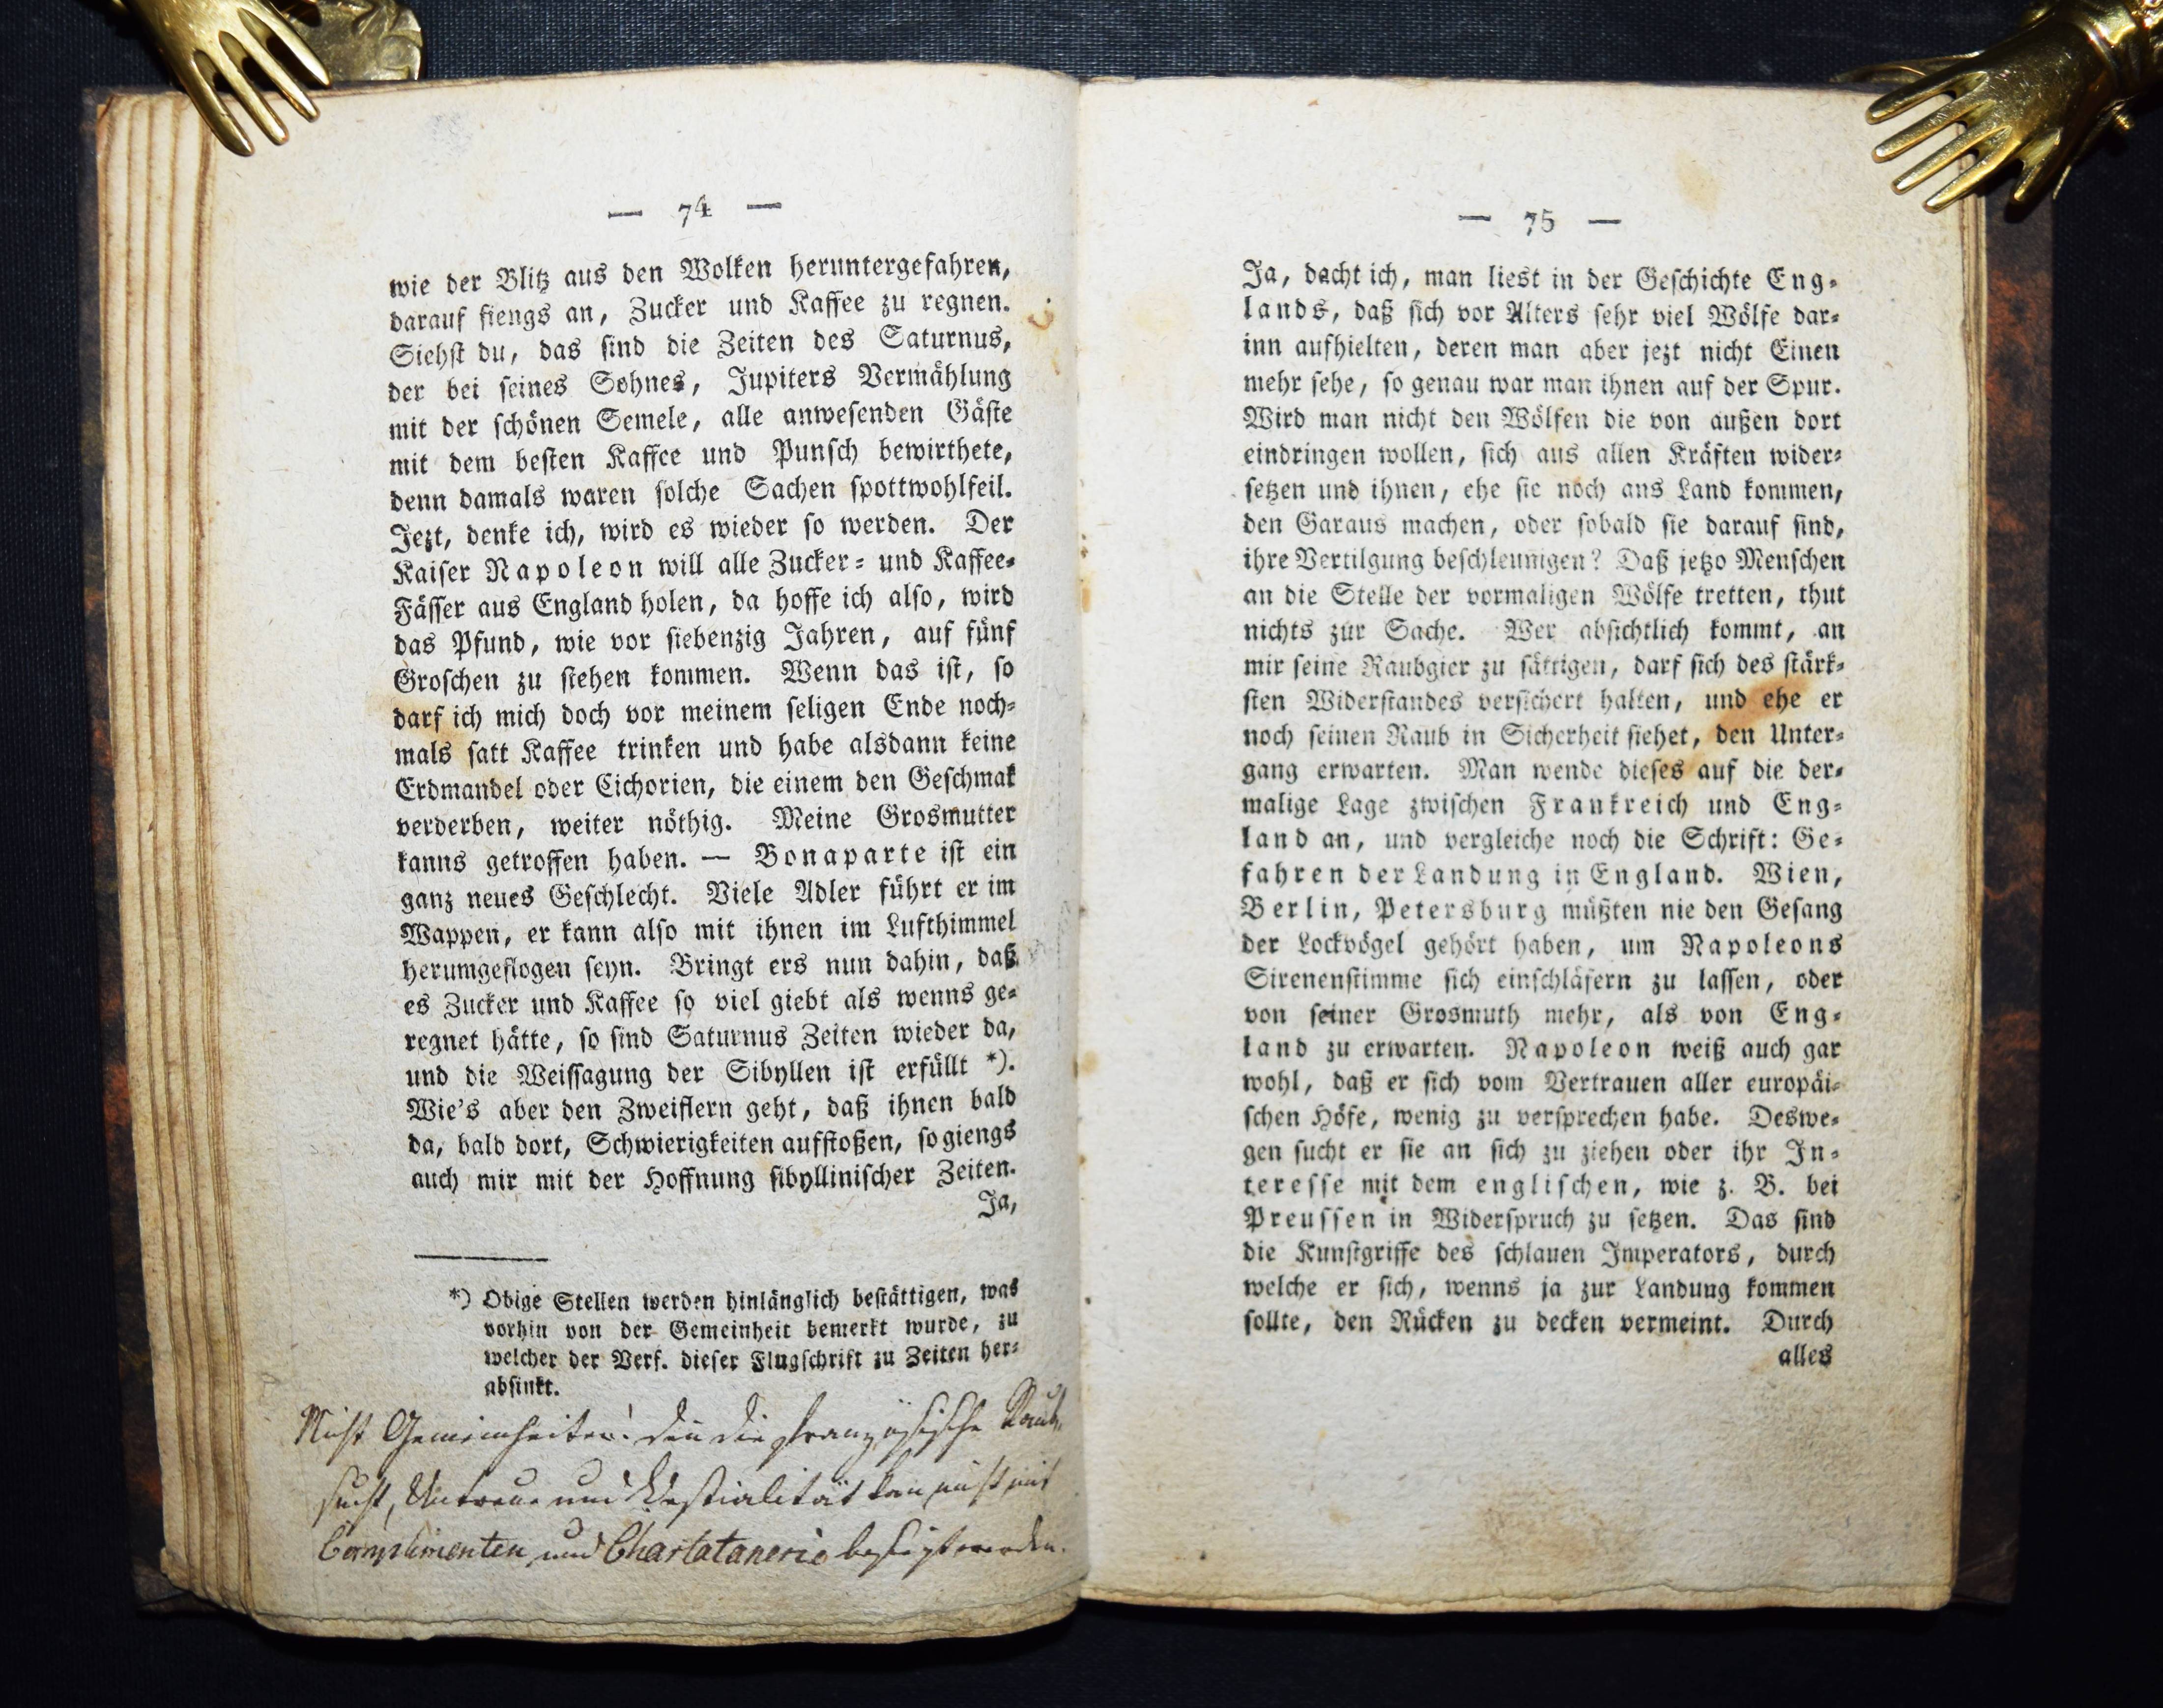 — 74 —
wie der Blitz aus den Wolken heruntergefahren,
darauf fiengs an, Zucker und Kaffee zu regnen.
Siehst du, das sind die Zeiten des Saturnus,
der bei seines Sohnes, Jupiters Vermählung
mit der schönen Semele, alle anwesenden Gäste
mit dem besten Kaffee und Punsch bewirthete,
denn damals waren solche Sachen spottwohlfeil.
Jezt, denke ich, wird es wieder so werden. Der
Kaiser Napoleon will alle Zucker- und Kaffee-
Fässer aus England holen, da hoffe ich also, wird
das Pfund, wie vor siebenzig Jahren, auf fünf
Groschen zu stehen kommen. Wenn das ist, so
darf ich mich doch vor meinem seligen Ende noch-
mals satt Kaffee trinken und habe alsdann keine
Erdmandel oder Cichorien, die einem den Geschmak
verderben, weiter nöthig. Meine Grosmutter
kanns getroffen haben. — Bonaparte ist ein
ganz neues Geschlecht. Viele Adler führt er im
Wappen, er kann also mit ihnen im Lufthimmel
herumgeflogen seyn. Bringt ers nun dahin, daß
es Zucker und Kaffee so viel giebt als wenns ge-
regnet hätte, so sind Saturnus Zeiten wieder da,
und die Weissagung der Sibyllen ist erfüllt *).
Wie's aber den Zweiflern geht, daß ihnen bald
da, bald dort, Schwierigkeiten aufstoßen, so giengs
auch mir mit der Hoffnung sibyllinischer Zeiten.
Ja,
*) Obige Stellen werden hinlänglich bestättigen, was
vorhin von der Gemeinheit bemerkt wurde, zu
welcher der Verf. dieser Flugschrift zu Zeiten her-
absinkt.
Nicht Gemeinheiten! den die französische Raub-
sucht, Untreue und Bestialität kan nicht mit
Complimenten und Charlatanerie besiegt werden.
— 75 —
Ja, dacht ich, man liest in der Geschichte Eng-
lands, daß sich vor Alters sehr viel Wölfe dar-
inn aufhielten, deren man aber jezt nicht Einen
mehr sehe, so genau war man ihnen auf der Spur.
Wird man nicht den Wölfen die von außen dort
eindringen wollen, sich aus allen Kräften wider-
setzen und ihnen, ehe sie noch ans Land kommen,
den Garaus machen, oder sobald sie darauf sind,
ihre Vertilgung beschleunigen? Daß jetzo Menschen
an die Stelle der vormaligen Wölfe tretten, thut
nichts zur Sache. Wer absichtlich kommt, an
mir seine Raubgier zu sättigen, darf sich des stärk-
sten Widerstandes versichert halten, und ehe er
noch seinen Raub in Sicherheit siehet, den Unter-
gang erwarten. Man wende dieses auf die der-
malige Lage zwischen Frankreich und Eng-
land an, und vergleiche noch die Schrift: Ge-
fahren der Landung in England. Wien,
Berlin, Petersburg müßten nie den Gesang
der Lockvögel gehört haben, um Napoleons
Sirenenstimme sich einschläfern zu lassen, oder
von seiner Grosmuth mehr, als von Eng-
land zu erwarten. Napoleon weiß auch gar
wohl, daß er sich vom Vertrauen aller europäi-
schen Höfe, wenig zu versprechen habe. Deswe-
gen sucht er sie an sich zu ziehen oder ihr In-
teresse mit dem englischen, wie z. B. bei
Preussen in Widerspruch zu setzen. Das sind
die Kunstgriffe des schlauen Imperators, durch
welche er sich, wenns ja zur Landung kommen
sollte, den Rücken zu decken vermeint. Durch
alles